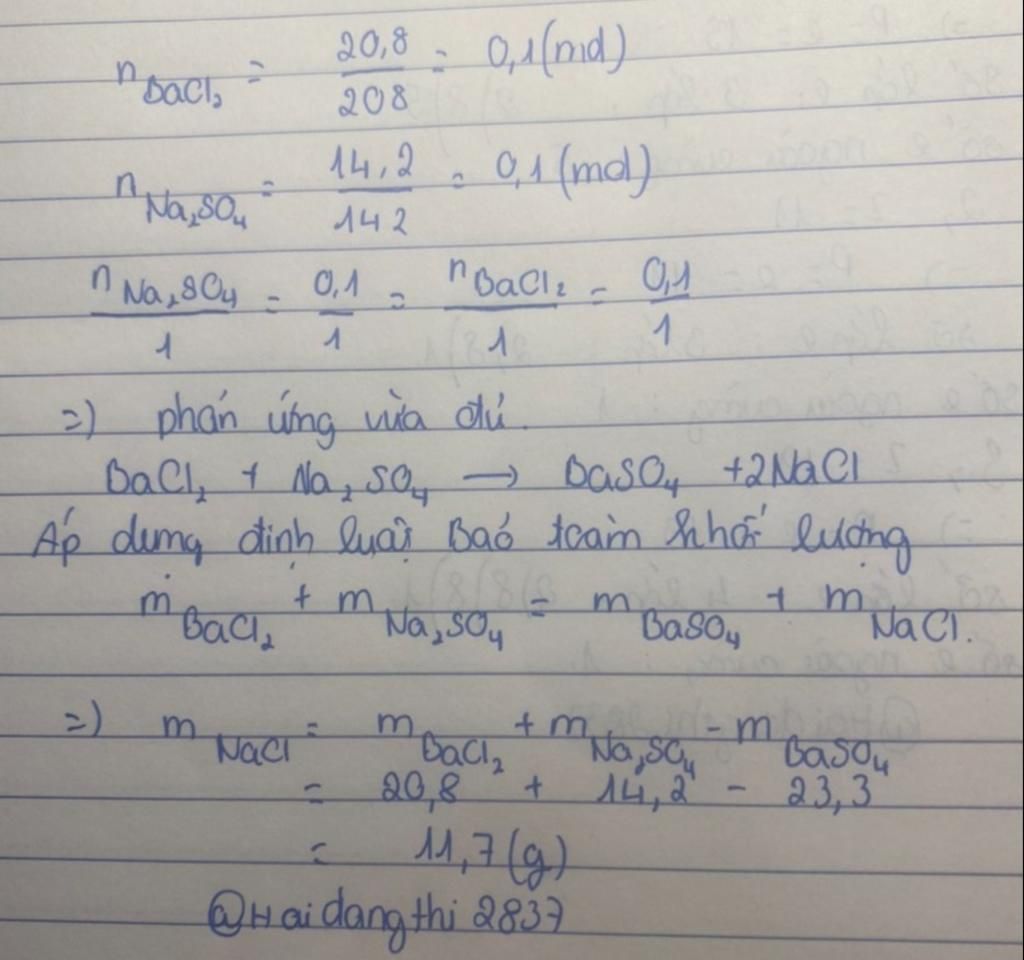 n BaCl₂ = 20,8/208 = 0,1 (mol)
n Na₂SO₄ = 14,2/142 = 0,1 (mol)
n Na₂SO₄/1 = 0,1/1 = n BaCl₂/1 = 0,1/1
=) phản ứng vừa đủ.
BaCl₂ + Na₂SO₄ → BaSO₄ + 2NaCl
Áp dụng định luật Bảo toàn khối lượng
m BaCl₂ + m Na₂SO₄ = m BaSO₄ + m NaCl.
=) m NaCl = m BaCl₂ + m Na₂SO₄ - m BaSO₄
= 20,8 + 14,2 - 23,3
= 11,7 (g)
@Haidangthi2837